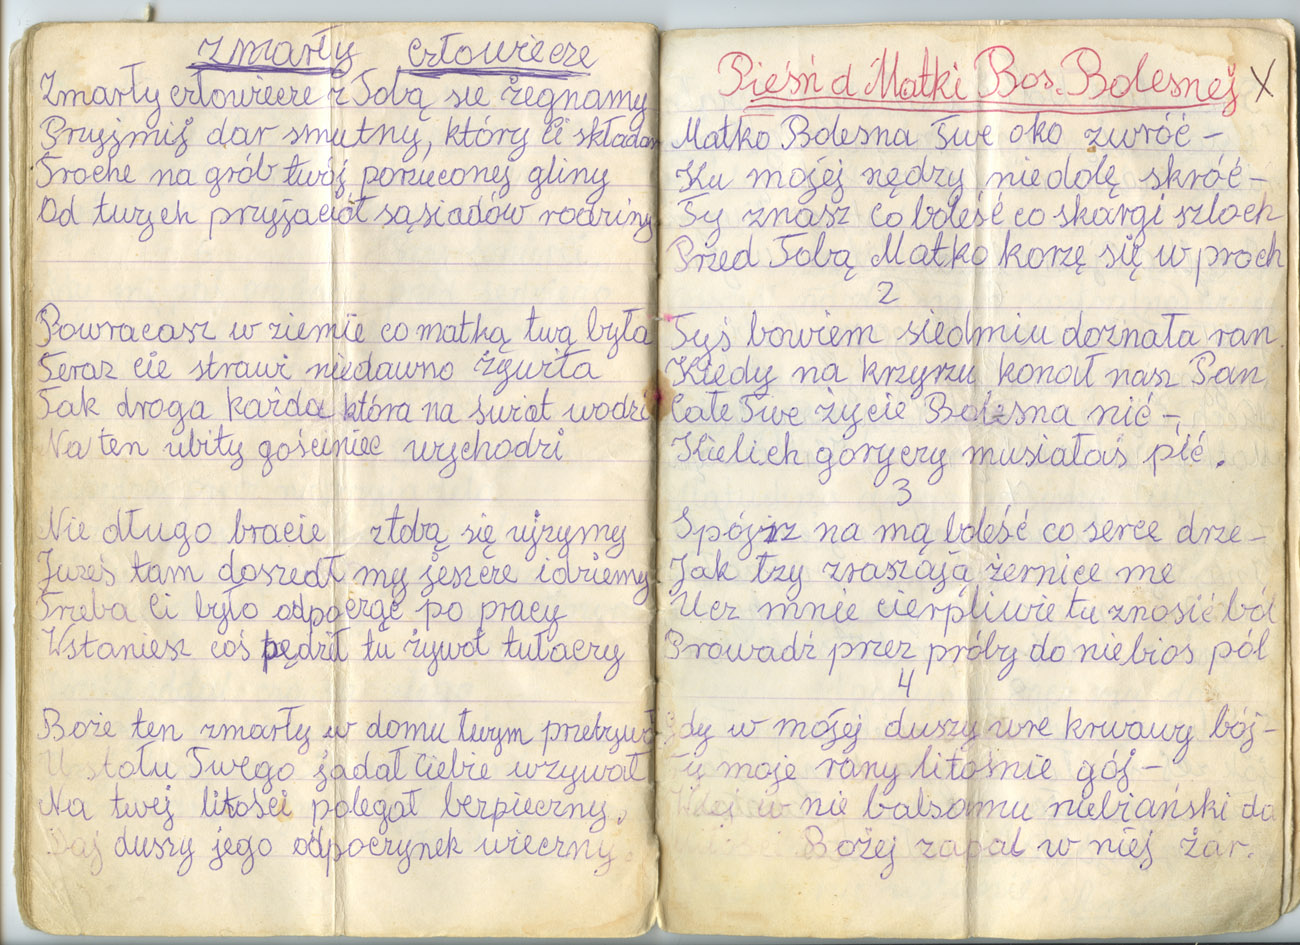 zmarły człowiecze
Zmarły człowiecze z Tobą sie żegnamy
Pryjmij dar smutny, który Ci składam
Troche na grób twój porzuconej gliny
Od twych pryjaciół sąsiadów rodziny
Powracasz w ziemie co matką twą była
Teraz cie strawi niedawno żywiła
Tak droga każda która na świat wodzi
Na ten ubity gościniec wychodzi
Nie długo bracie ztobą się ujzymy
Jużeś tam doszedł my jeszcze idziemy
Treba Ci było odpocząć po pracy
Wstaniesz coś pędził tu żywot tułaczy
Boże ten zmarły w domu twym przebywał
Ustołu Twego jadał Ciebie wzywał
Na twej litości polegał bezpieczny,
Daj duszy jego odpoczynek wieczny.
Pieśń d Matki Bos. Bolesnej X
Matko Bolesna Twe oko zwróć –
Ku mojej nędzy niedolę skróć –
Ty znasz co boleść co skargi szloch
Przed Tobą Matko korzę się w proch
2
Tyś bowiem siedmiu doznała ran
Kiedy na krzyżu konał nasz Pan
Całe Twe życie Bolesna nić –
Kielich goryczy musiałaś pić.
3
Spójrz na mą boleść co serce drze –
Jak łzy zraszają żernice me
Ucz mnie cierpliwie tu znosić ból
Prowadź przez próby do niebios pól
4
Gdy w mojej duszy wre krwawy bój –
Ty moje rany litośnie gój –
w nie balsamu niebiański da
Bożej zapal w niej żar.